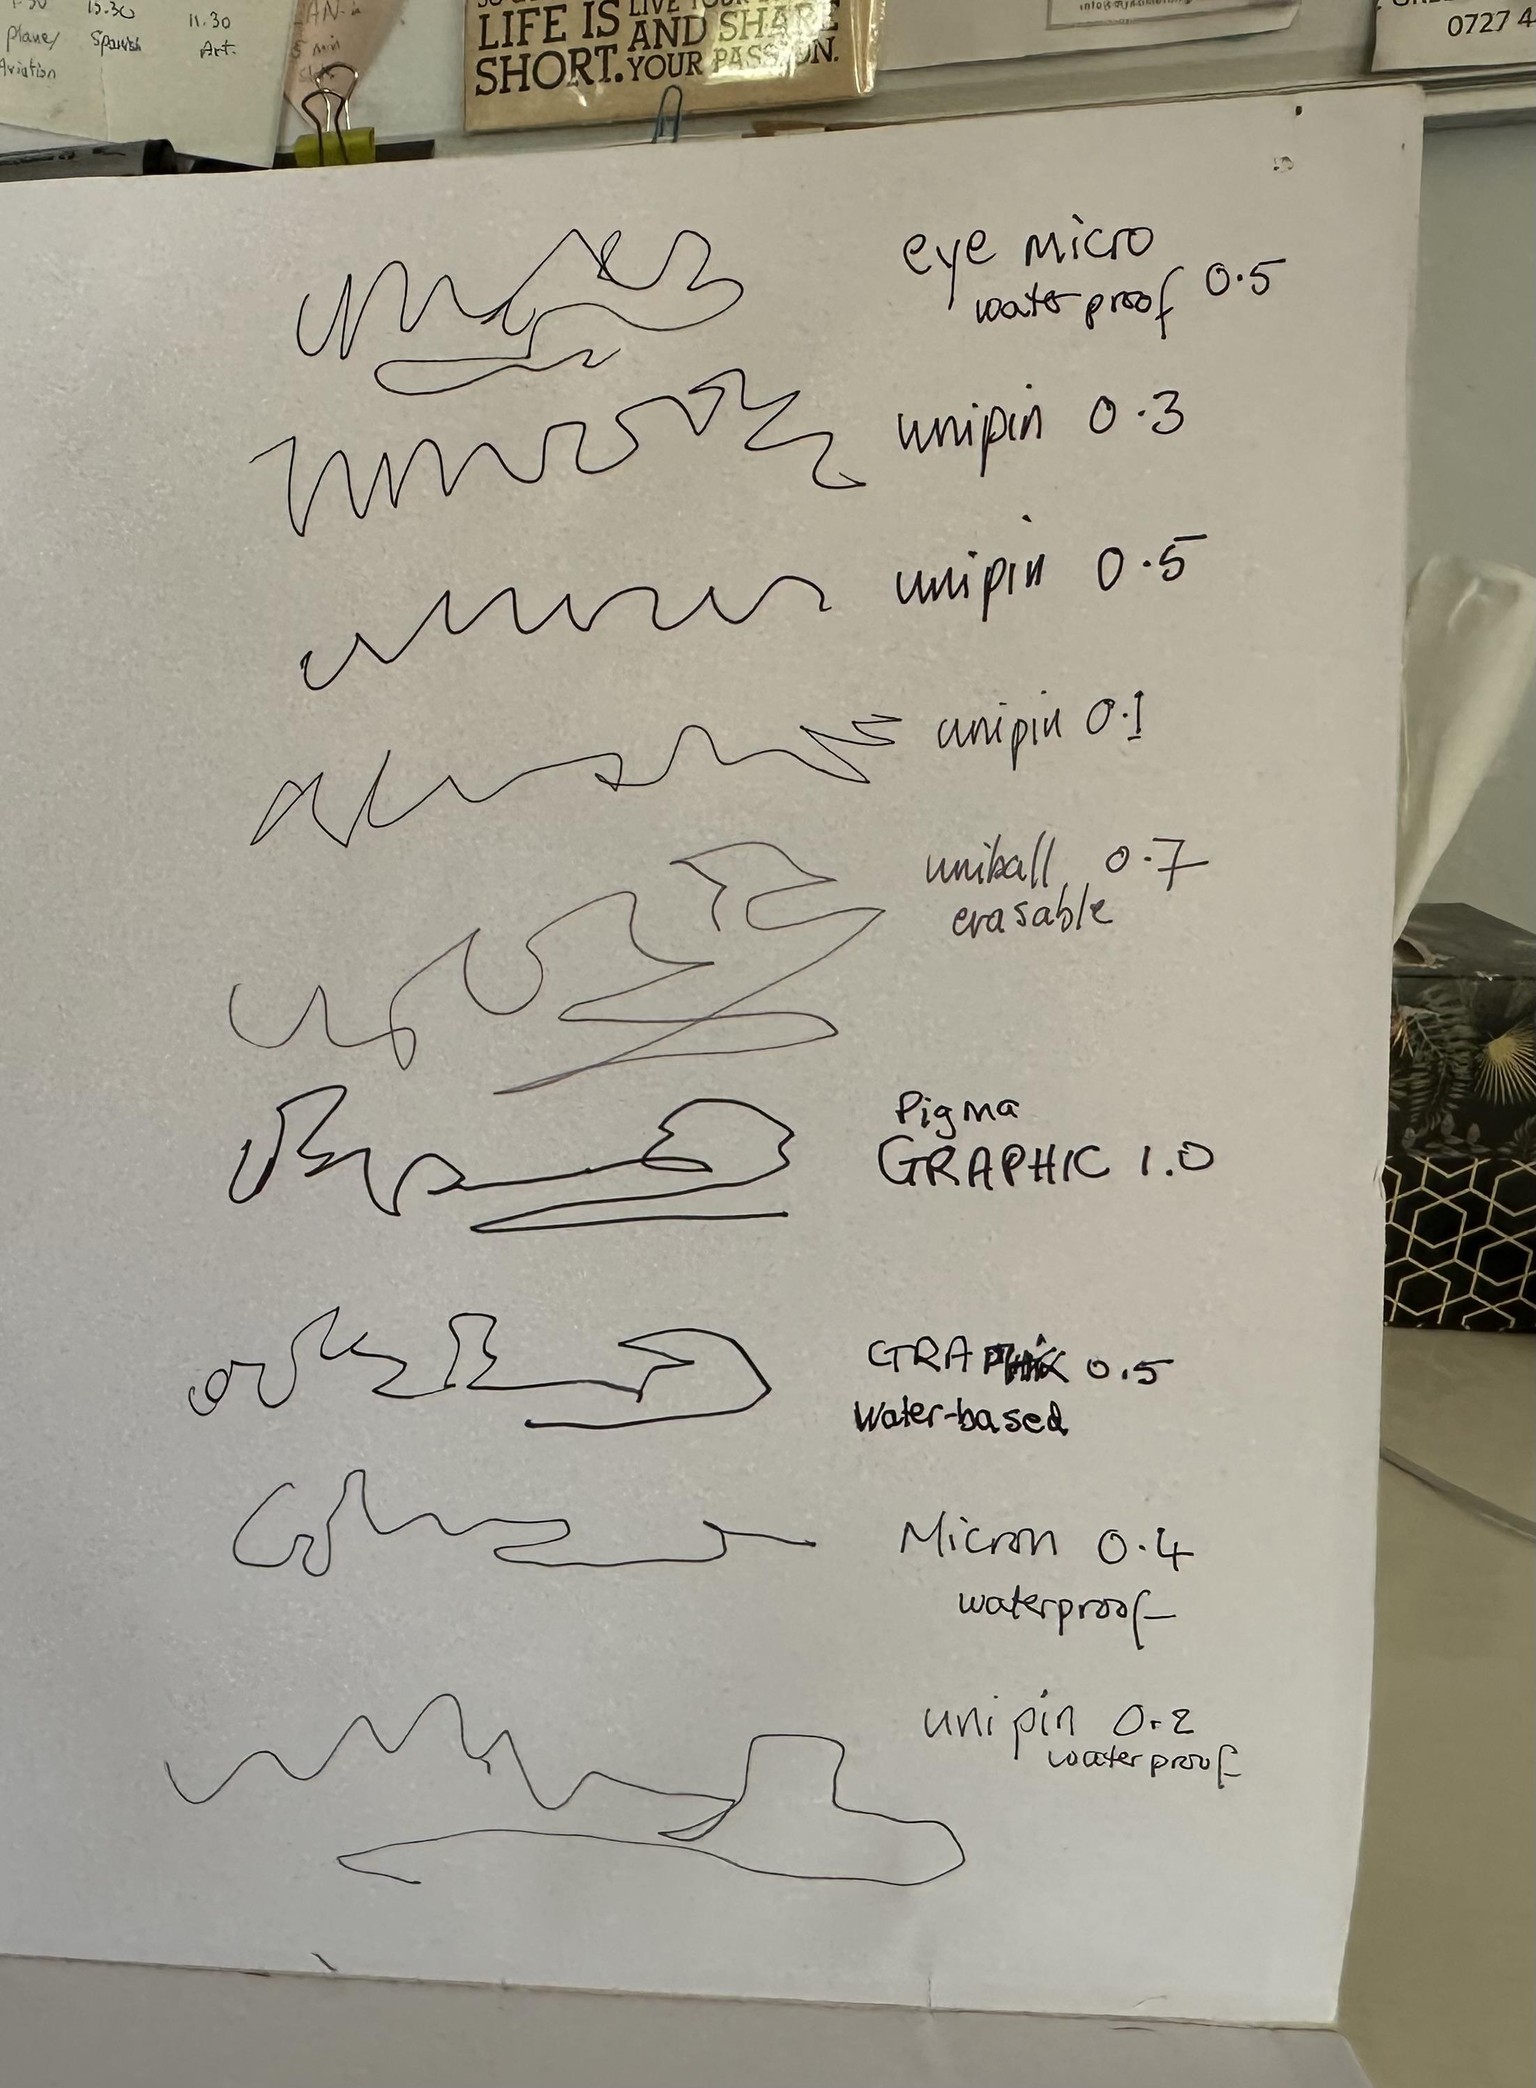 15.30
11.30
plane/
Spanish
Art.
Aviation
5 min
LIFE IS
SHORT.
LIVE YOUR
AND SHARE
YOUR PASSION.
0727 4
eye micro
waterproof 0.5
unipin 0.3
unipin 0.5
unipin 0.1
uniball 0.7
erasable
Pigma
GRAPHIC 1.0
GRAPHIC 0.5
Water-based
Micron 0.4
waterproof
unipin 0.2
waterproof